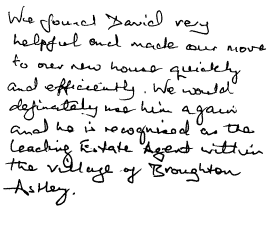 We found David very
helpful and made our move
to our new house quickly
and efficiently. We would
definately use him again
and he is recognised as the
Leading Estate Agent within
the village of Broughton
Astley.